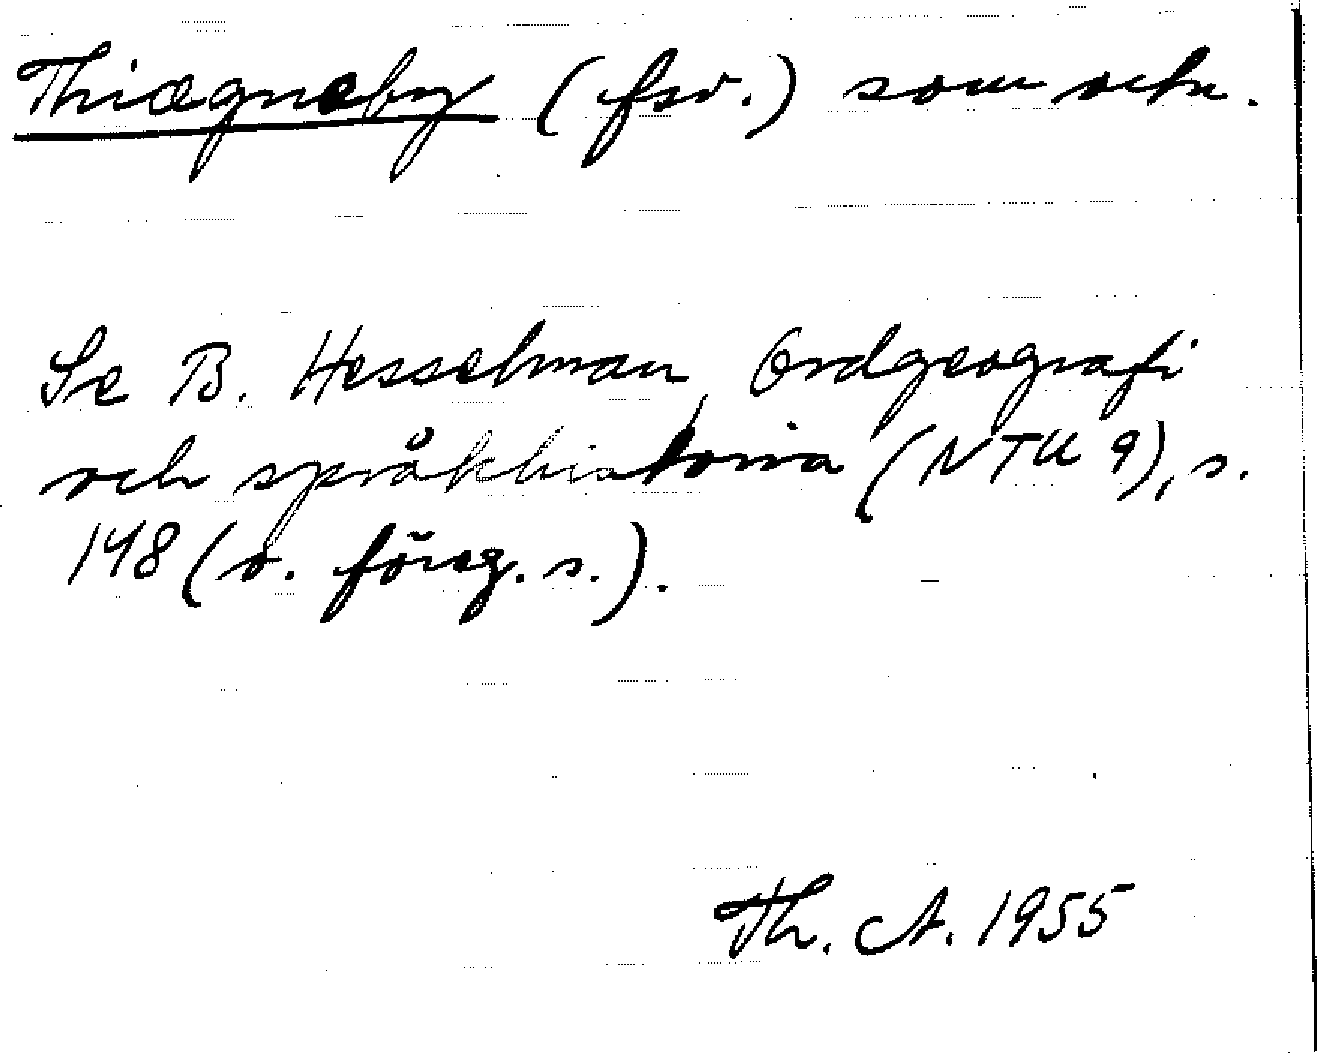 Thiægnaby (fsv.) som ortn.
Se B. Hesselman, Ordgeografi
och språkhistoria (NTU 9), s.
148 (o. föreg. s.).
Th. A. 1955